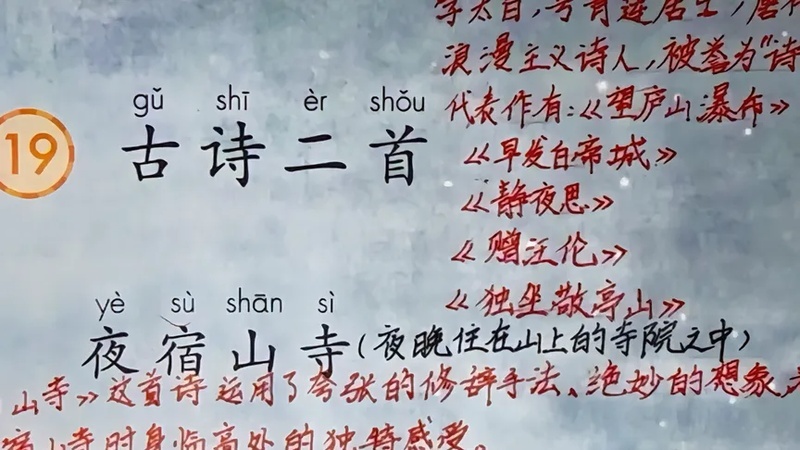 字太白，号青莲居士，唐代
浪漫主义诗人，被誉为"诗
gǔ shī èr shǒu
代表作有：《望庐山瀑布》
19 古诗二首
《早发白帝城》
《静夜思》
《赠汪伦》
《独坐敬亭山》
yè sù shān sì
夜宿山寺（夜晚住在山上的寺院之中）
山寺》这首诗运用了夸张的修辞手法、绝妙的想象
宿山寺时身临高处的独特感受。